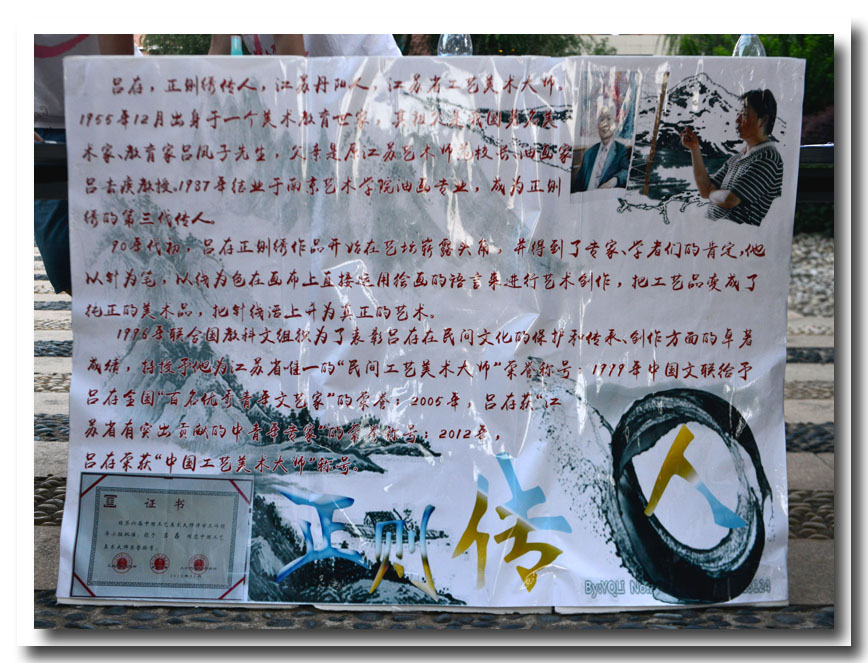 吕存，正则绣传人，江苏丹阳人，江苏省工艺美术大师。
1955年12月出身于一个美术教育世家，其祖父是我国著名美
术家、教育家吕凤子先生，父亲是原江苏艺术师范校长、油画家
吕去疾教授。1987年结业于南京艺术学院油画专业，成为正则
绣的第三代传人。
90年代初，吕存正则绣作品开始在艺坛崭露头角，并得到了专家、学者们的肯定，他
以针为笔，以线为色在画布上直接运用绘画的语言来进行艺术创作，把工艺品变成了
纯正的美术品，把针线活上升为真正的艺术。
1996年联合国教科文组织为了表彰吕存在民间文化的保护和传承、创作方面的卓著
成绩，特授予他为江苏省唯一的“民间工艺美术大师”荣誉称号．1999年中国文联给予
吕存全国“百名优秀青年文艺家”的荣誉；2005年，吕存获“江
苏省有突出贡献的中青年专家”的荣誉称号；2012年，
吕存荣获“中国工艺美术大师”称号。
证书
正则传人
By:YQLI